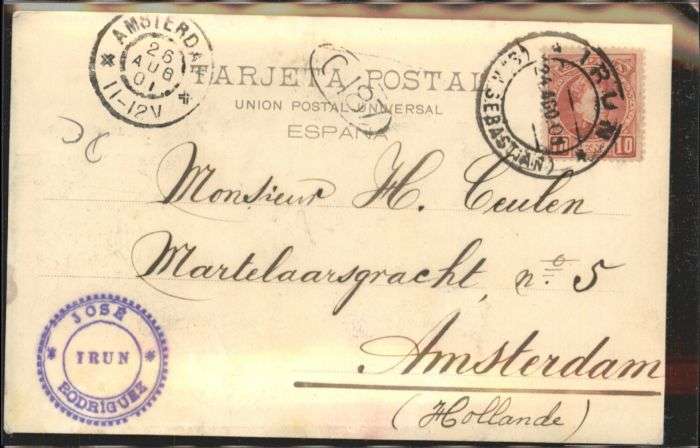 AMSTERDAM
26
AUG
01
11-12V
TARJETA POSTAL
UNION POSTAL UNIVERSAL
ESPAÑA
IRUN
(S. SEBASTIAN)
10
Monsieur H. Ceulen
Martelaarsgracht, nº 5
Amsterdam
(Hollande)
JOSÉ
IRUN
RODRÍGUEZ